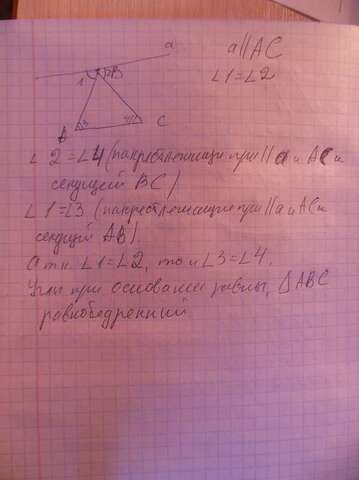 a
a||AC
∠1=∠2
1 2 B
A 3 4 C
∠2=∠4 (накрестлежащие при || a и AC и
секущей BC)
∠1=∠3 (накрестлежащие при || a и AC и
секущей AB).
а т.к. ∠1=∠2, то и ∠3=∠4.
Углы при основании равны, △ABC
равнобедренный.